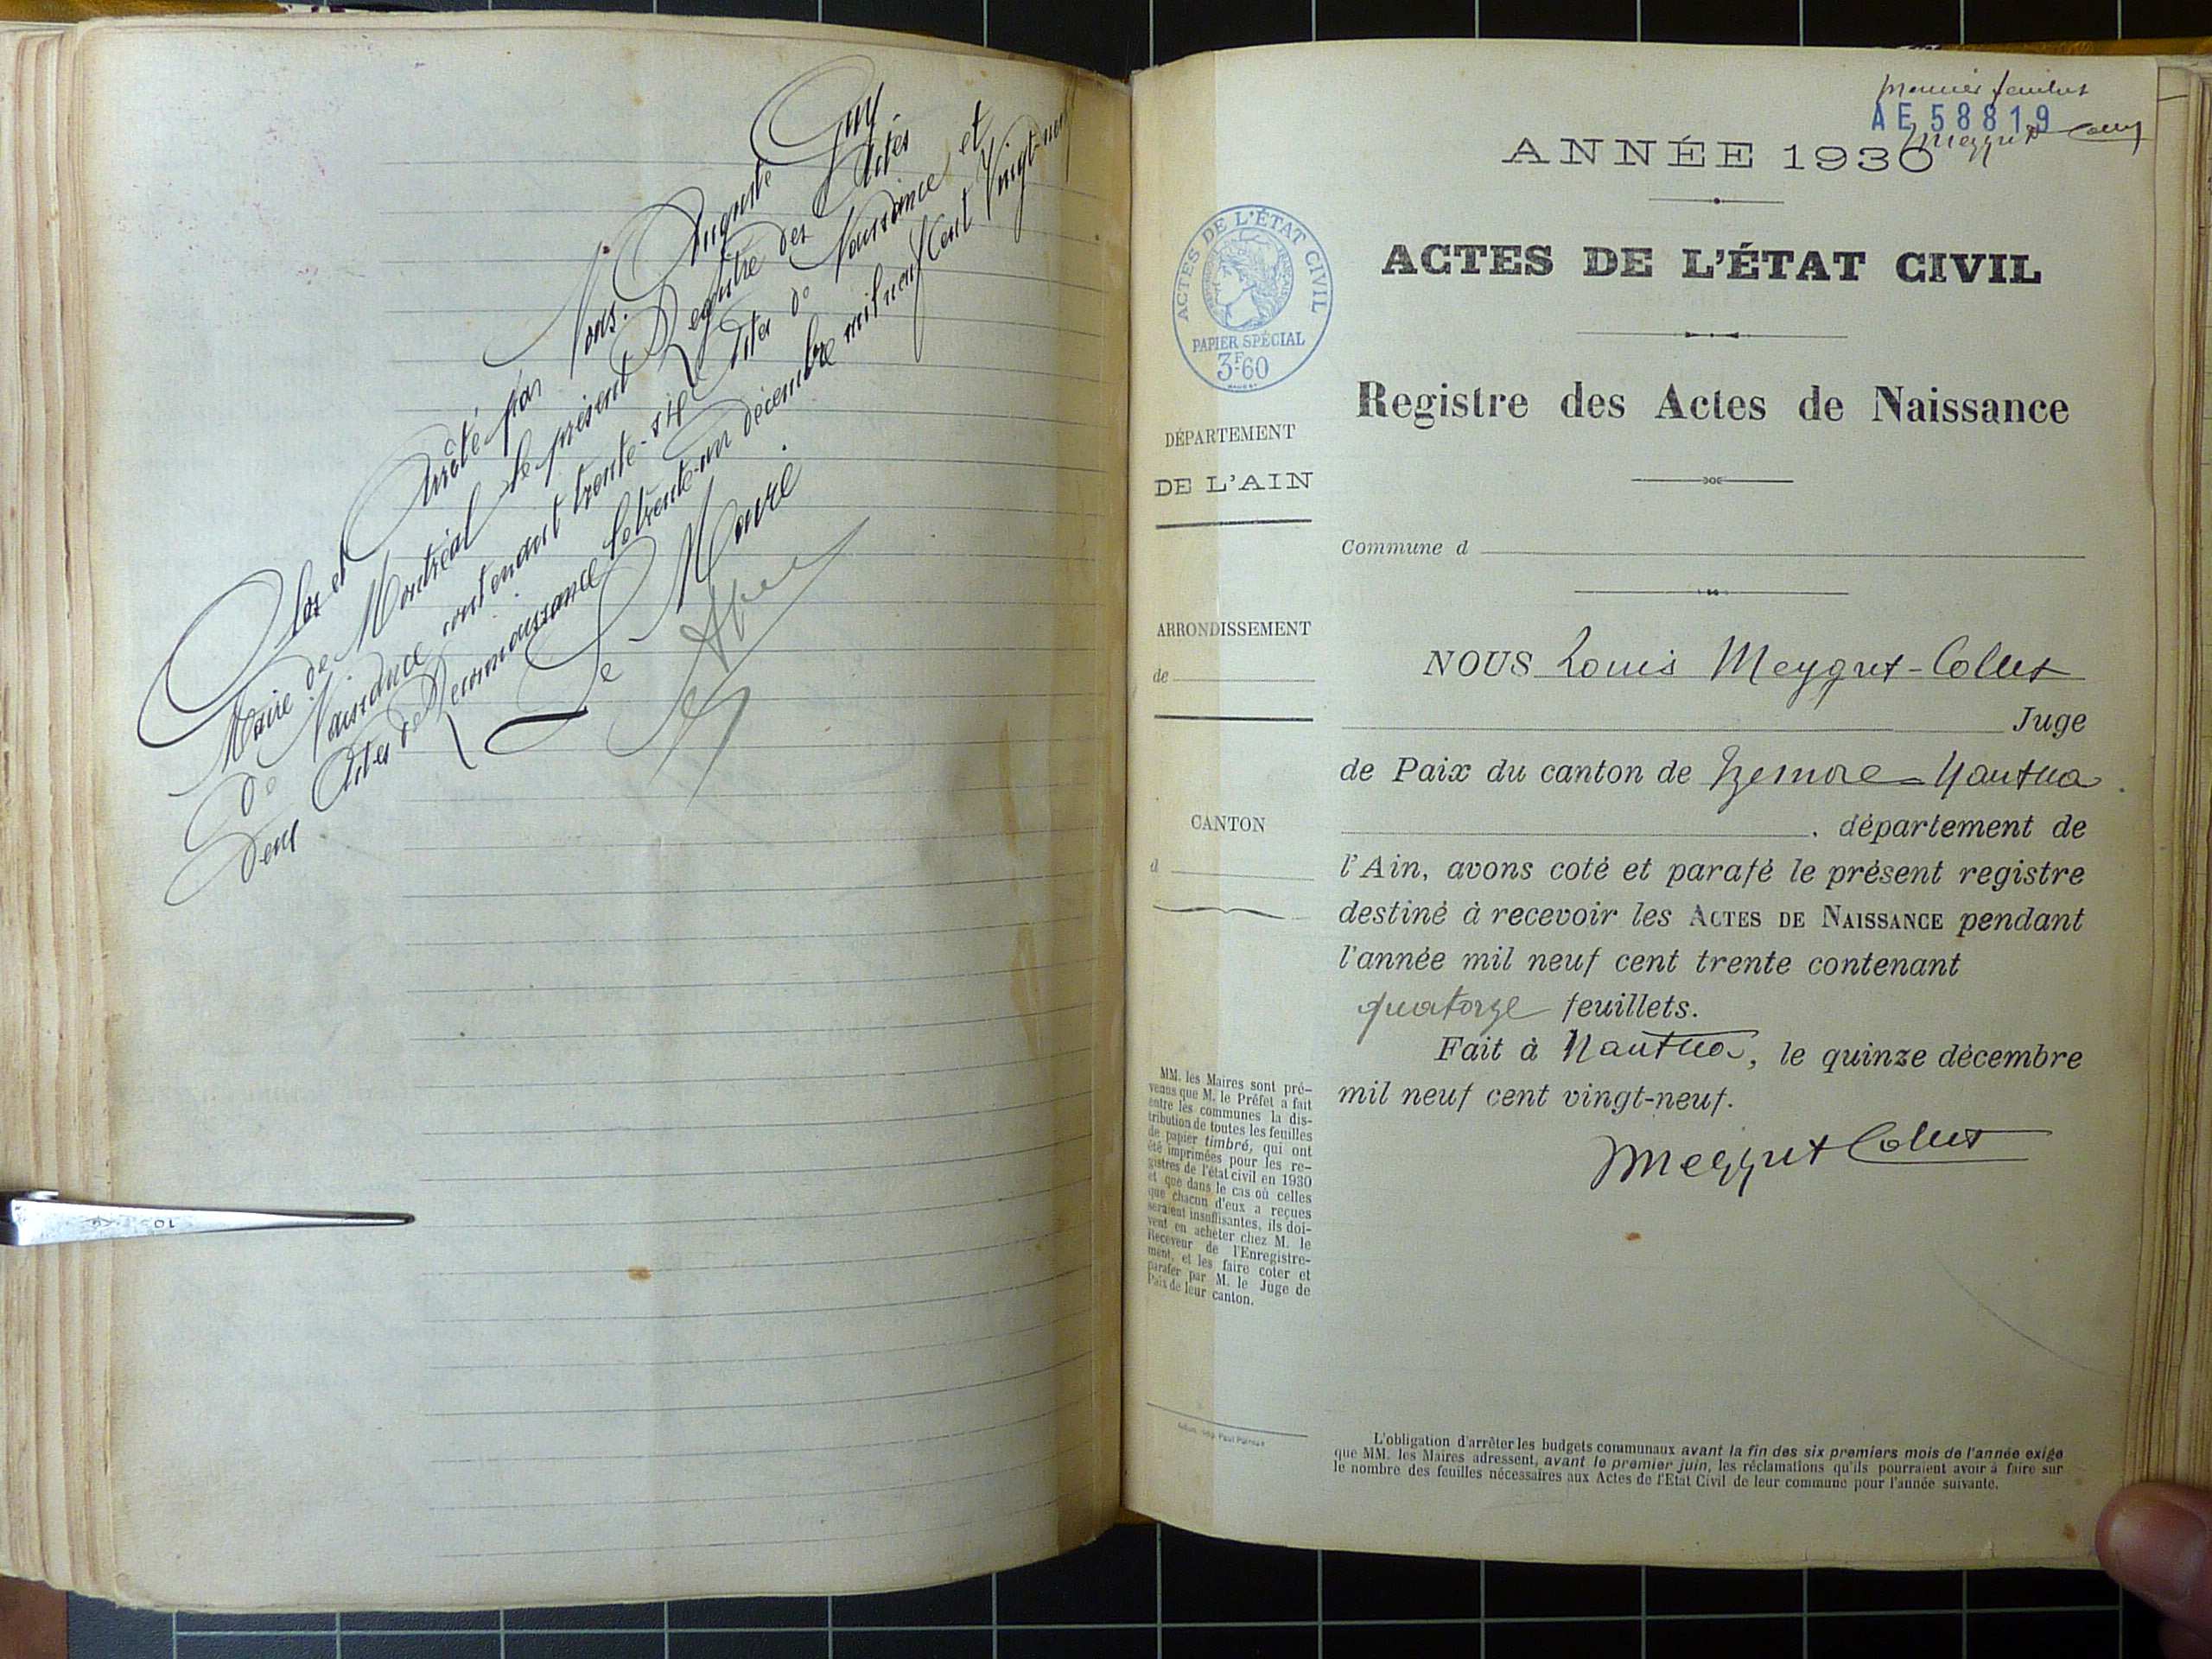 Clos et Arrêté par Nous. Auguste Guy
Maire de Montréal le présent Registre des Actes
de Naissance contenant trente-six Actes de Naissance et
deux Actes de Reconnaissance le trente-un décembre mil neuf cent Vingt-neuf
Le Maire
premier feuillet
AE 58819
ANNÉE 1930
ACTES DE L'ÉTAT CIVIL
ACTES DE L'ÉTAT CIVIL
PAPIER SPÉCIAL
3F60
Registre des Actes de Naissance
DÉPARTEMENT
DE L'AIN
Commune d
ARRONDISSEMENT
de
NOUS Louis Meygret-Collet
Juge
de Paix du canton de Izernore-Nantua
CANTON
d
, département de
l'Ain, avons coté et parafé le présent registre
destiné à recevoir les ACTES DE NAISSANCE pendant
l'année mil neuf cent trente contenant
quatorze feuillets.
Fait à Nantua, le quinze décembre
mil neuf cent vingt-neuf.
Meygret Collet
MM. les Maires sont pré-
venus que M. le Préfet a fait
entre les communes la dis-
tribution de toutes les feuilles
de papier timbré, qui ont
été imprimées pour les re-
gistres de l'état civil en 1930
et que dans le cas où celles
que chacun d'eux a reçues
seraient insuffisantes, ils doi-
vent en acheter chez M. le
Receveur de l'Enregistre-
ment, et les faire coter et
parafer par M. le Juge de
Paix de leur canton.
L'obligation d'arrêter les budgets communaux avant la fin des six premiers mois de l'année exige
que MM. les Maires adressent, avant le premier juin, les réclamations qu'ils pourraient avoir à faire sur
le nombre des feuilles nécessaires aux Actes de l'Etat Civil de leur commune pour l'année suivante.